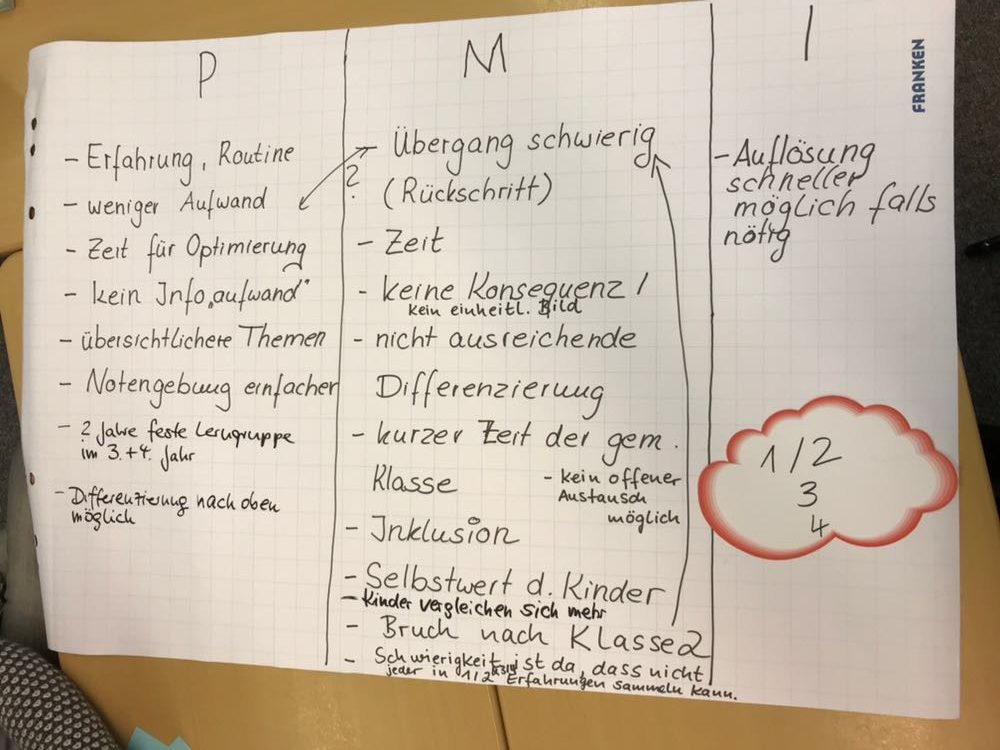 P
- Erfahrung, Routine
- weniger Aufwand
- Zeit für Optimierung
- kein Info„aufwand"
- übersichtlichere Themen
- Notengebung einfacher
- 2 Jahre feste Lerngruppe
im 3.+4. Jahr
- Differenzierung nach oben
möglich
M
- Übergang schwierig
?
(Rückschritt)
- Zeit
- keine Konsequenz /
kein einheitl. Bild
- nicht ausreichende
Differenzierung
- kurzer Zeit der gem.
Klasse
- kein offener
Austausch
möglich
- Inklusion
- Selbstwert d. Kinder
- Kinder vergleichen sich mehr
- Bruch nach Klasse 2
- Schwierigkeit ist da, dass nicht
jeder in 1/2 Erfahrungen sammeln kann.
I
- Auflösung
schneller
möglich falls
nötig
1/2
3
4
FRANKEN